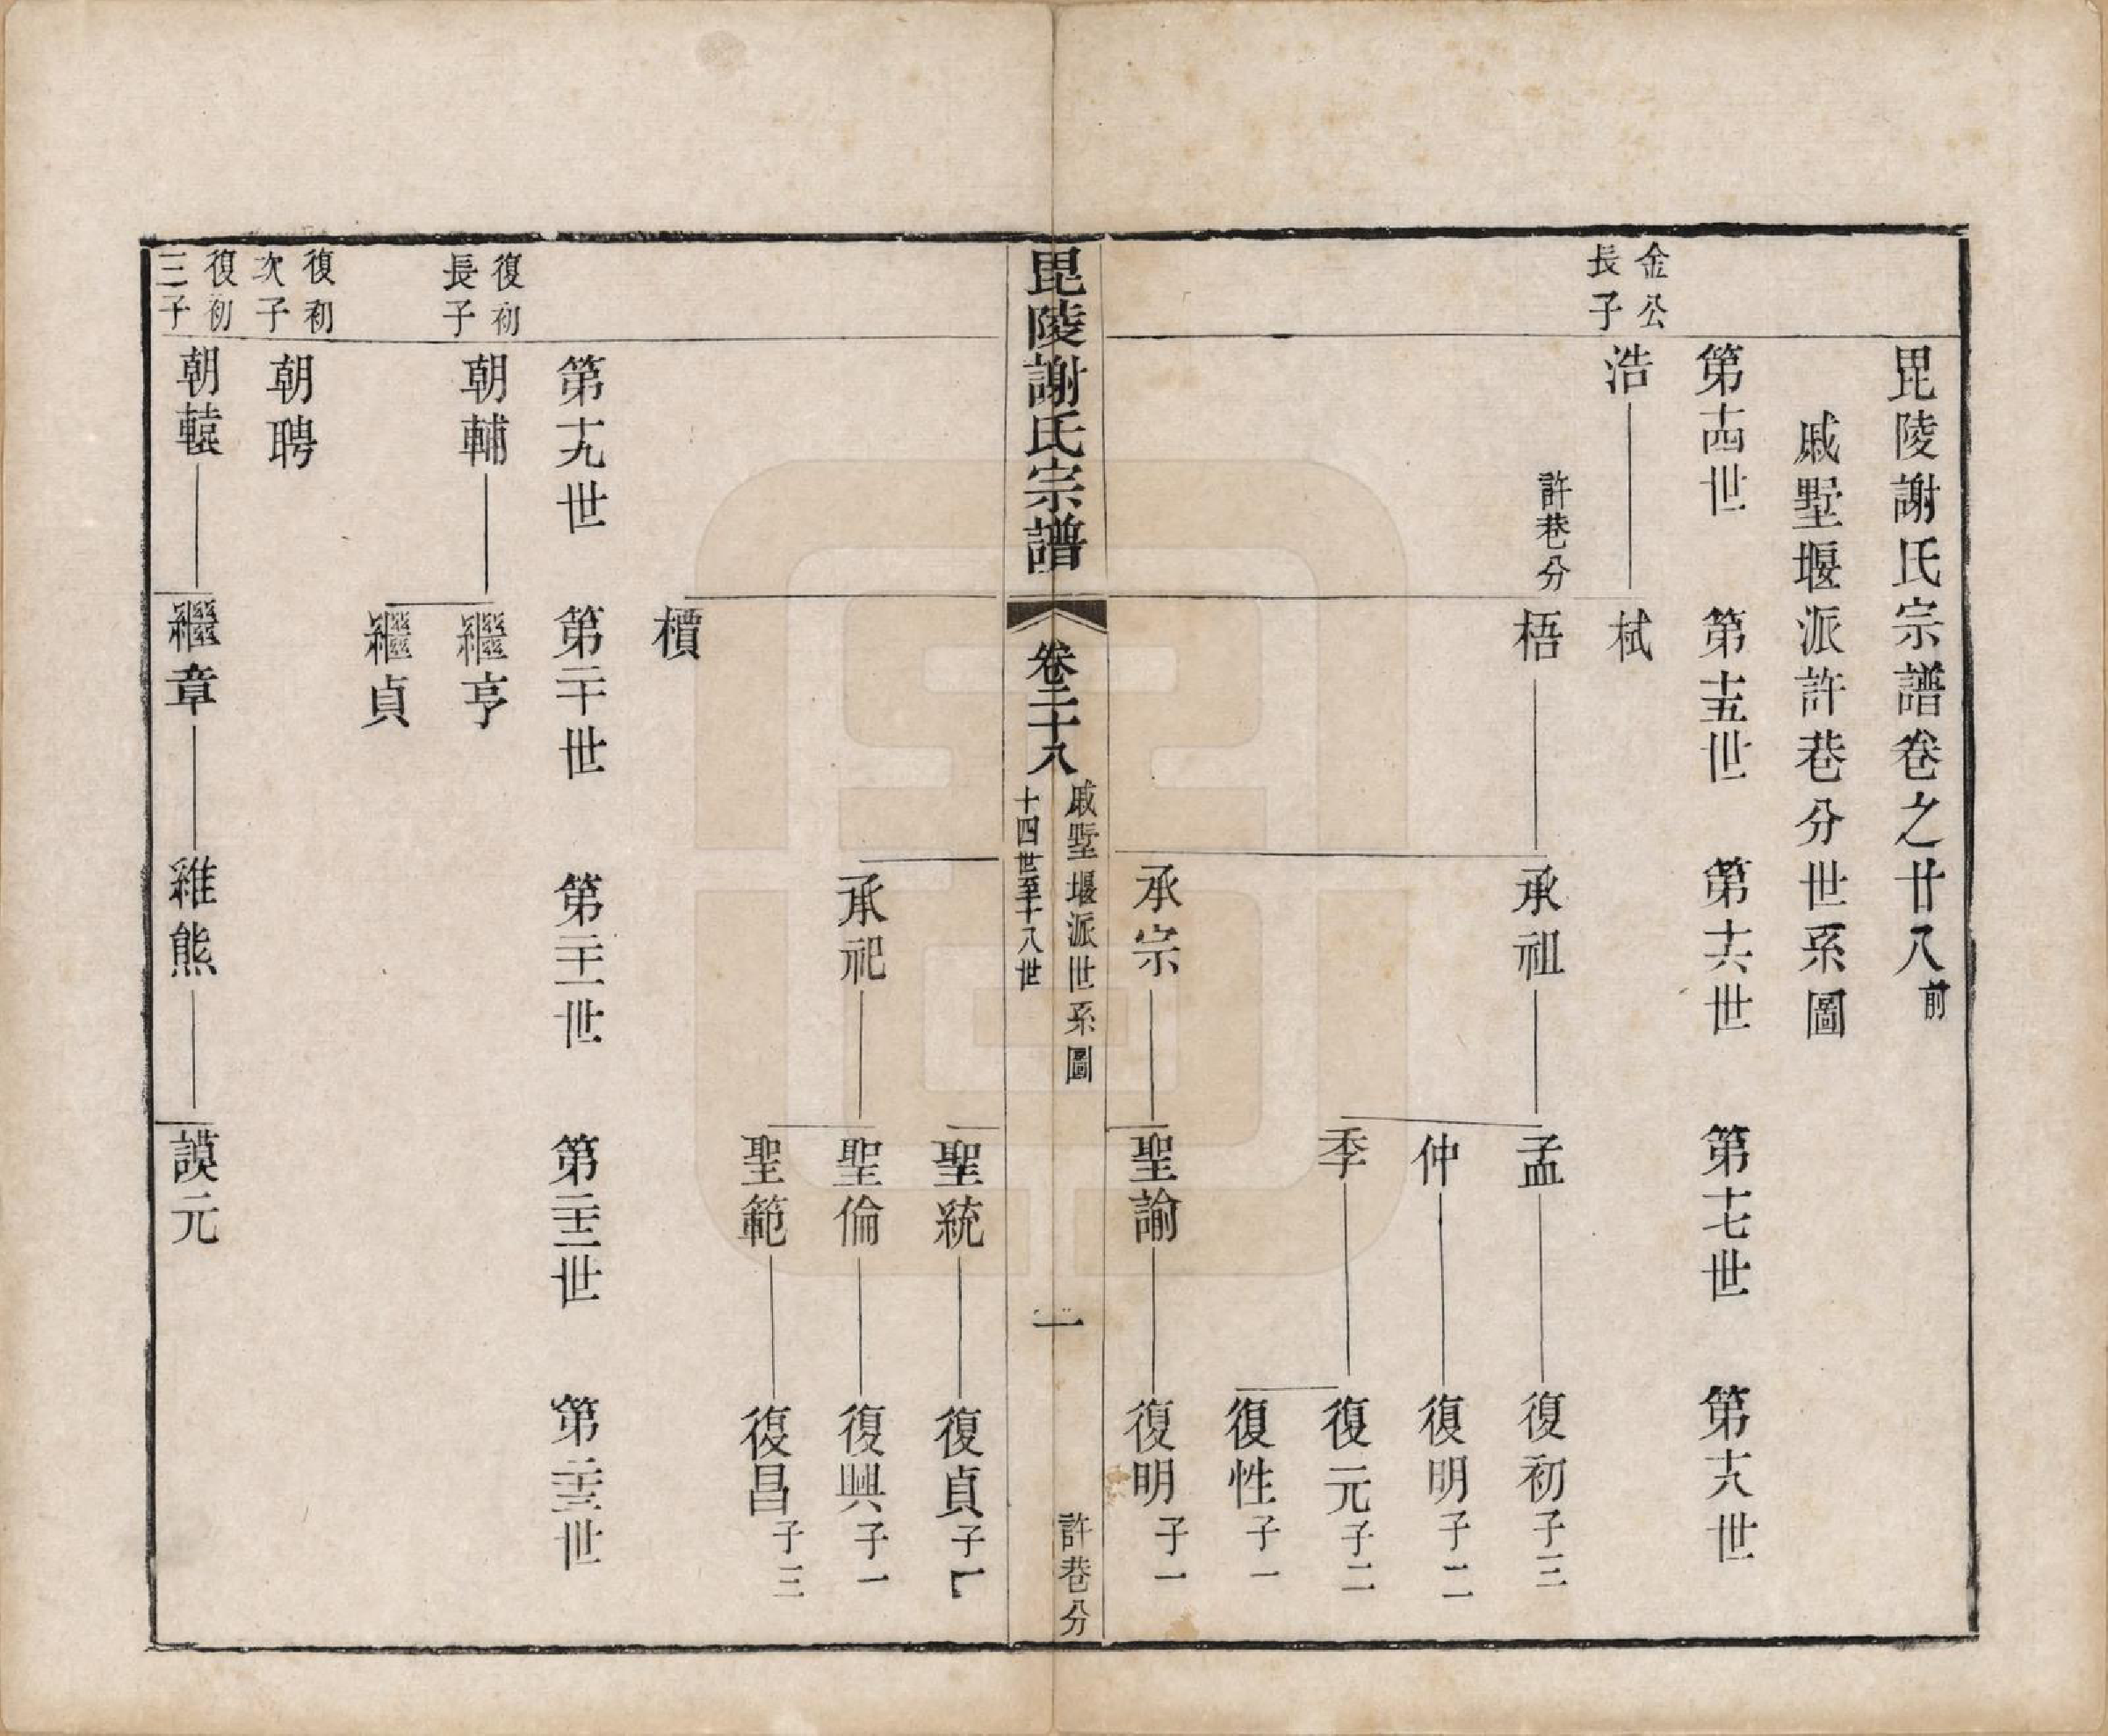 毘陵謝氏宗譜卷之廿八前
戚墅堰派許巷分世系圖
第十四世 第十五世 第十六世 第十七世 第十八世
金公長子 浩 栻
許巷分 梧 承祖 孟 復初子三
仲 復明子二
季 復元子二
復性子一
承宗 聖諭 復明子一
毘陵謝氏宗譜 卷二十八 戚墅堰派世系圖 十四世至十八世 一 許巷分
聖統 復貞子
承祀 聖倫 復興子一
聖範 復昌子三
櫝
第十九世 第二十世 第二十一世 第二十二世 第二十三世
復初長子 朝輔 繼亨
繼貞
復初次子 朝聘
復初三子 朝轅 繼章 維熊 謨元